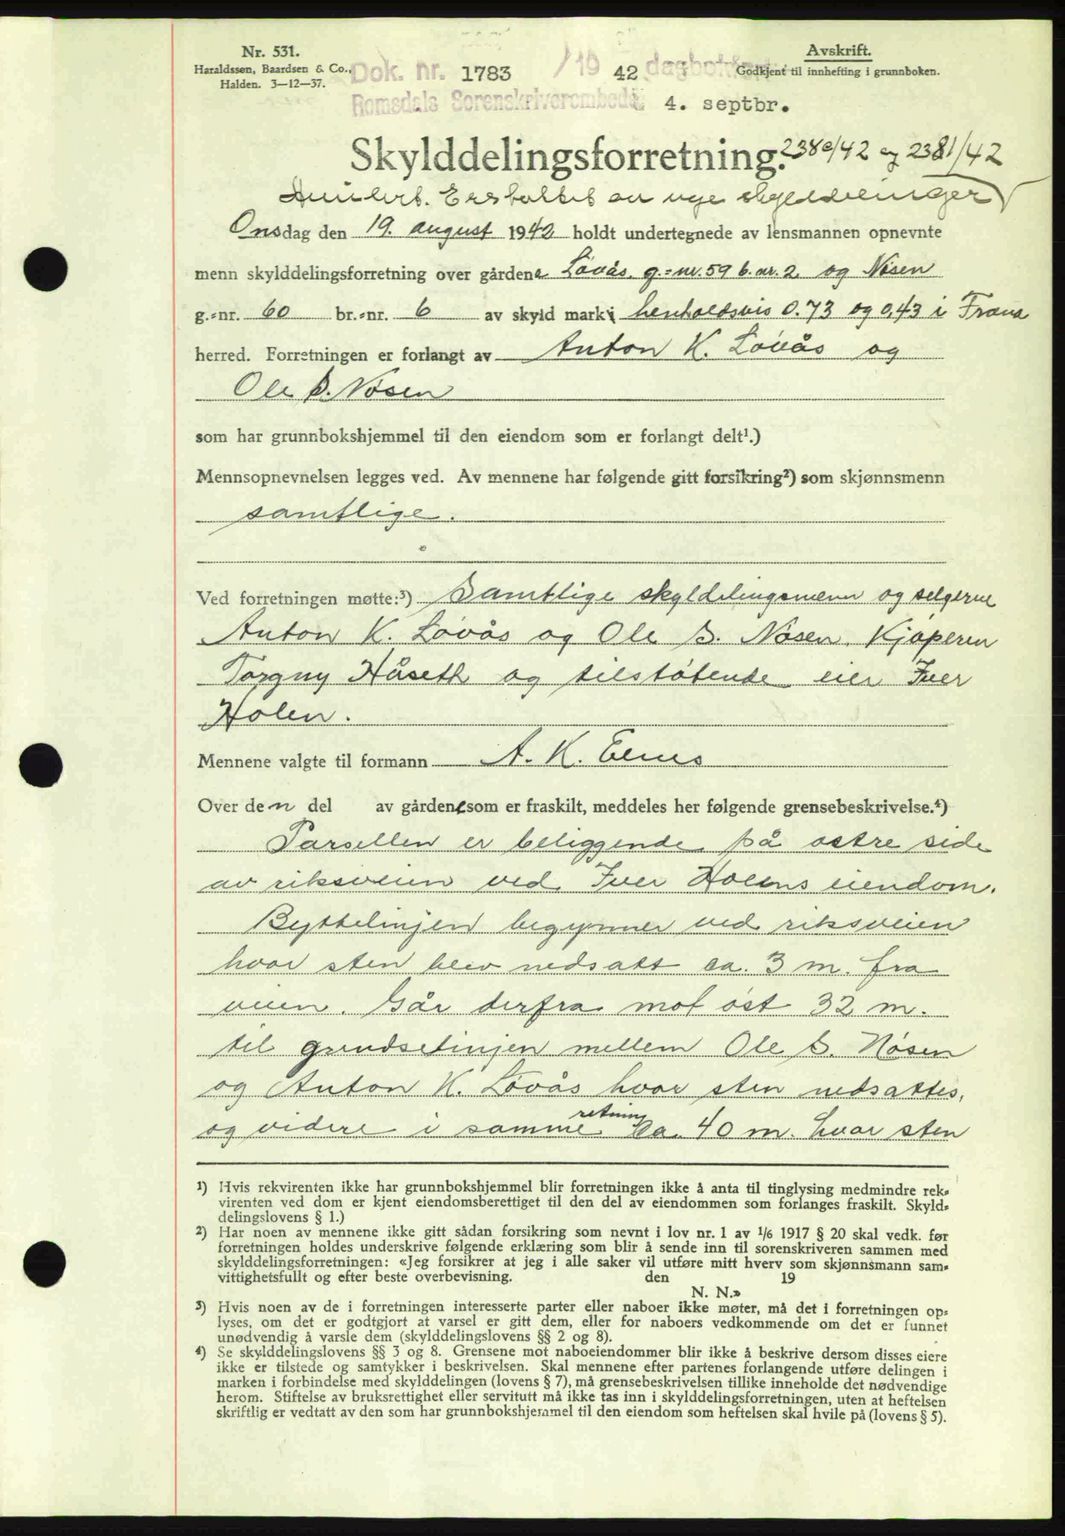 Nr. 531.
Haraldssen, Baardsen & Co.,
Halden. 3-12-37.
Avskrift.
Godkjent til innhefting i grunnboken.
Dok. nr. 1783 /19 42 dagbok
Romsdals Sorenskriverembede 4. septbr.
Skylddelingsforretning. 2380/42 og 2381/42
Annullert. Erstattet av nye skylddelinger
Onsdag den 19. august 1942 holdt undertegnede av lensmannen opnevnte
menn skylddelingsforretning over gårdene Løvås g.-nr. 59 b.nr. 2 og Nøsen
g.-nr. 60 br.-nr. 6 av skyld mark henholdsvis 0.73 og 0,43 i Fræna
herred. Forretningen er forlangt av Anton K. Løvås og
Ole S. Nøsen
som har grunnbokshjemmel til den eiendom som er forlangt delt¹.)
Mennsopnevnelsen legges ved. Av mennene har følgende gitt forsikring²) som skjønnsmenn
samtlige.
Ved forretningen møtte:³) Samtlige skyldelingsmenn og selgerne
Anton K. Løvås og Ole S. Nøsen. Kjøperen
Torgny Håseth og tilstøtende eier Iver
Holen.
Mennene valgte til formann A. K. Elnes
Over den del av gårdene som er fraskilt, meddeles her følgende grensebeskrivelse.⁴)
Parsellen er beliggende på østre side
av riksveien ved Iver Holens eiendom.
Byttelinjen begynner ved riksveien
hvor sten blev nedsatt ca. 3 m. fra
veien. Går derfra mot øst 32 m.
til grendselinjen mellem Ole S. Nøsen
og Anton K. Løvås hvor sten nedsattes,
og videre i samme retning ca. 40 m. hvor sten
¹) Hvis rekvirenten ikke har grunnbokshjemmel blir forretningen ikke å anta til tinglysing medmindre rek-
virenten ved dom er kjent eiendomsberettiget til den del av eiendommen som forlanges fraskilt. Skyld-
delingslovens § 1.)
²) Har noen av mennene ikke gitt sådan forsikring som nevnt i lov nr. 1 av 1/6 1917 § 20 skal vedk. før
forretningen holdes underskrive følgende erklæring som blir å sende inn til sorenskriveren sammen med
skylddelingsforretningen: «Jeg forsikrer at jeg i alle saker vil utføre mitt hverv som skjønnsmann sam-
vittighetsfullt og efter beste overbevisning. den 19
N. N.»
³) Hvis noen av de i forretningen interesserte parter eller naboer ikke møter, må det i forretningen op-
lyses, om det er godtgjort at varsel er gitt dem, eller for naboers vedkommende om det er funnet
unødvendig å varsle dem (skylddelingslovens §§ 2 og 8).
⁴) Se skylddelingslovens §§ 3 og 8. Grensene mot naboeiendommer blir ikke å beskrive dersom disses eiere
ikke er tilstede og samtykker i beskrivelsen. Skal mennene efter partenes forlangende utføre delingen i
marken i forbindelse med skylddelingen (lovens § 7), må grensebeskrivelsen tillike inneholde det nødvendige
herom. Stiftelse av bruksrettighet eller servitutt må ikke tas inn i skylddelingsforretningen, uten at heftelsen
skriftlig er vedtatt av den som har grunnbokshjemmel til den eiendom som heftelsen skal hvile på (lovens § 5).